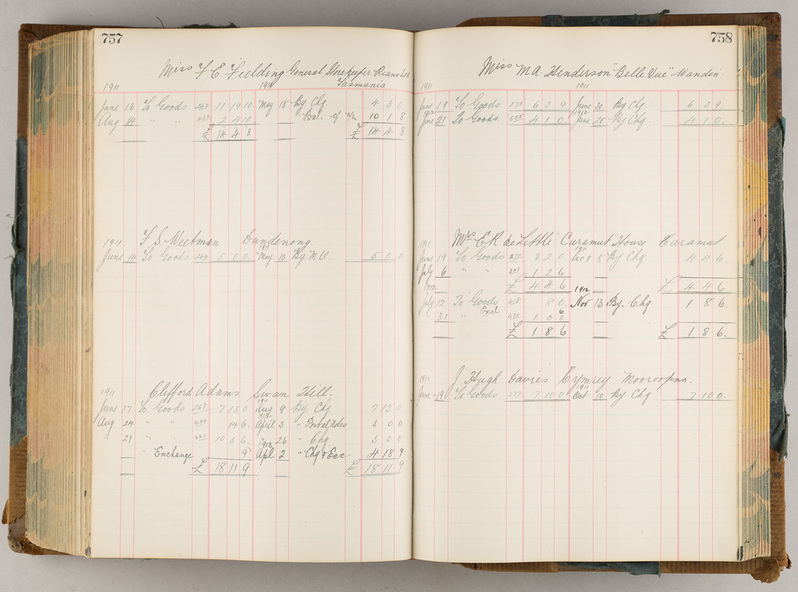 757
Miss F E Fielding General Storekeeper
Tasmania
1911
June 16 To Goods 11 19 10 May 18 By Chq 4 3 0
Aug 14 " " 2 4 10 " Bal. of a/c 10 1 8
£ 14 4 8 £ 14 4 8
1911 F. S. Meetman Dandenong
June 14 To Goods 5 0 0 May 12 By 5 0 0
1911 Clifford Adams Swan Hill.
June 17 To Goods 7 13 0 Aug 9 By Chq 7 13 0
Aug 24 " " 14 6 April 3 " Postal Notes 3 0 0
29 " " 10 3 6 26 " Chq 3 0 0
" Exchange 9 1912 Apl 2 " Chq & Exc 4 18 9
£ 18 11 9 £ 18 11 9
758
Miss M A Henderson "Belle Vue"
1911 1911
June 19 To Goods 237 6 2 9 June 30 By Chq 6 2 9
1912 June 21 To Goods 4 1 0 1912 June 28 By Chq 4 1 0
1911 Mrs E R de Little "Caramut House" Caramut
June 19 To Goods 237 3 2 0 5 By Chq 4 4 6
July 6 " " 1 2 6
£ 4 4 6 £ 4 4 6
1912 1912
July 12 To Goods 8 0 Nov 13 By Chq 1 8 6
6
31 " 1 0 0
£ 1 8 6 £ 1 8 6
1911 J. Hugh Davies Cymrey Mooroopna.
June 19 To Goods 237 7 10 0 Oct 12 By Chq 7 10 0